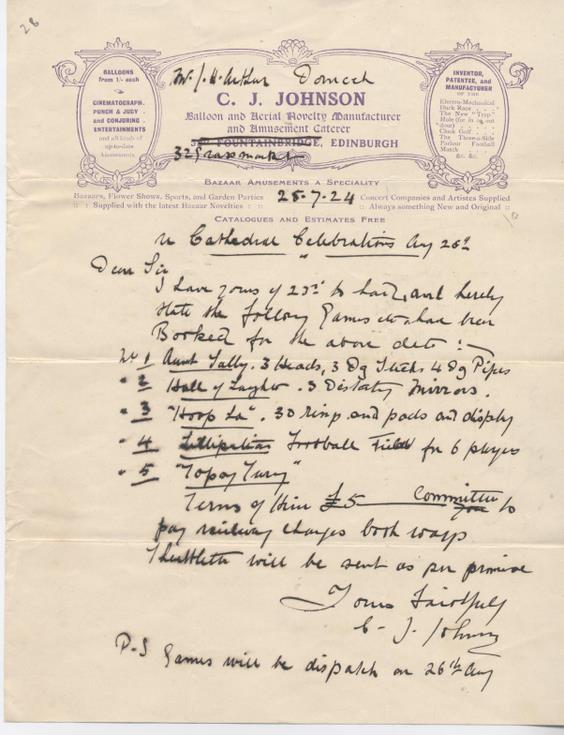 28
Mr. J. H. Arthur Dornoch
BALLOONS
from 1/- each
CINEMATOGRAPH,
PUNCH & JUDY
and CONJURING
ENTERTAINMENTS
and all kinds of
up-to-date
Amusements
C. J. JOHNSON
Balloon and Aerial Novelty Manufacturer
and Amusement Caterer
FOUNTAINBRIDGE, EDINBURGH
32 Grassmarket
INVENTOR,
PATENTEE, and
MANUFACTURER
OF THE
Electro-Mechanical
Duck Race
The New "Tryp"
Hole (for in or out
door)
Clock Golf
The Three-a-Side
Parlour Football
Match
&c. &c.
BAZAAR AMUSEMENTS A SPECIALITY
Bazaars, Flower Shows, Sports, and Garden Parties
Supplied with the latest Bazaar Novelties
28-7-24
Concert Companies and Artistes Supplied
Always something New and Original
10
CATALOGUES AND ESTIMATES FREE
Cathedral Celebrations Aug 28th
Dear Sir
I have yours of 23rd to hand, and hereby
state the following Games etc had been
Booked for the above date :-
No 1 Aunt Sally. 3 Heads, 3 Dg Sticks 4 Dg Pipes
" 2 Hall of Laughter. 3 Distorting Mirrors.
" 3 "Hoop La". 30 rings and pads and display
" 4 Lilliputian Football Field for 6 players
" 5 "Topsy Turvy"
Terms of Hire £5 Committee to
pay railway charges both ways
will be sent as per promise
Yours Faithfully
C. J. Johnson
P.S Games will be dispatch on 26th Aug